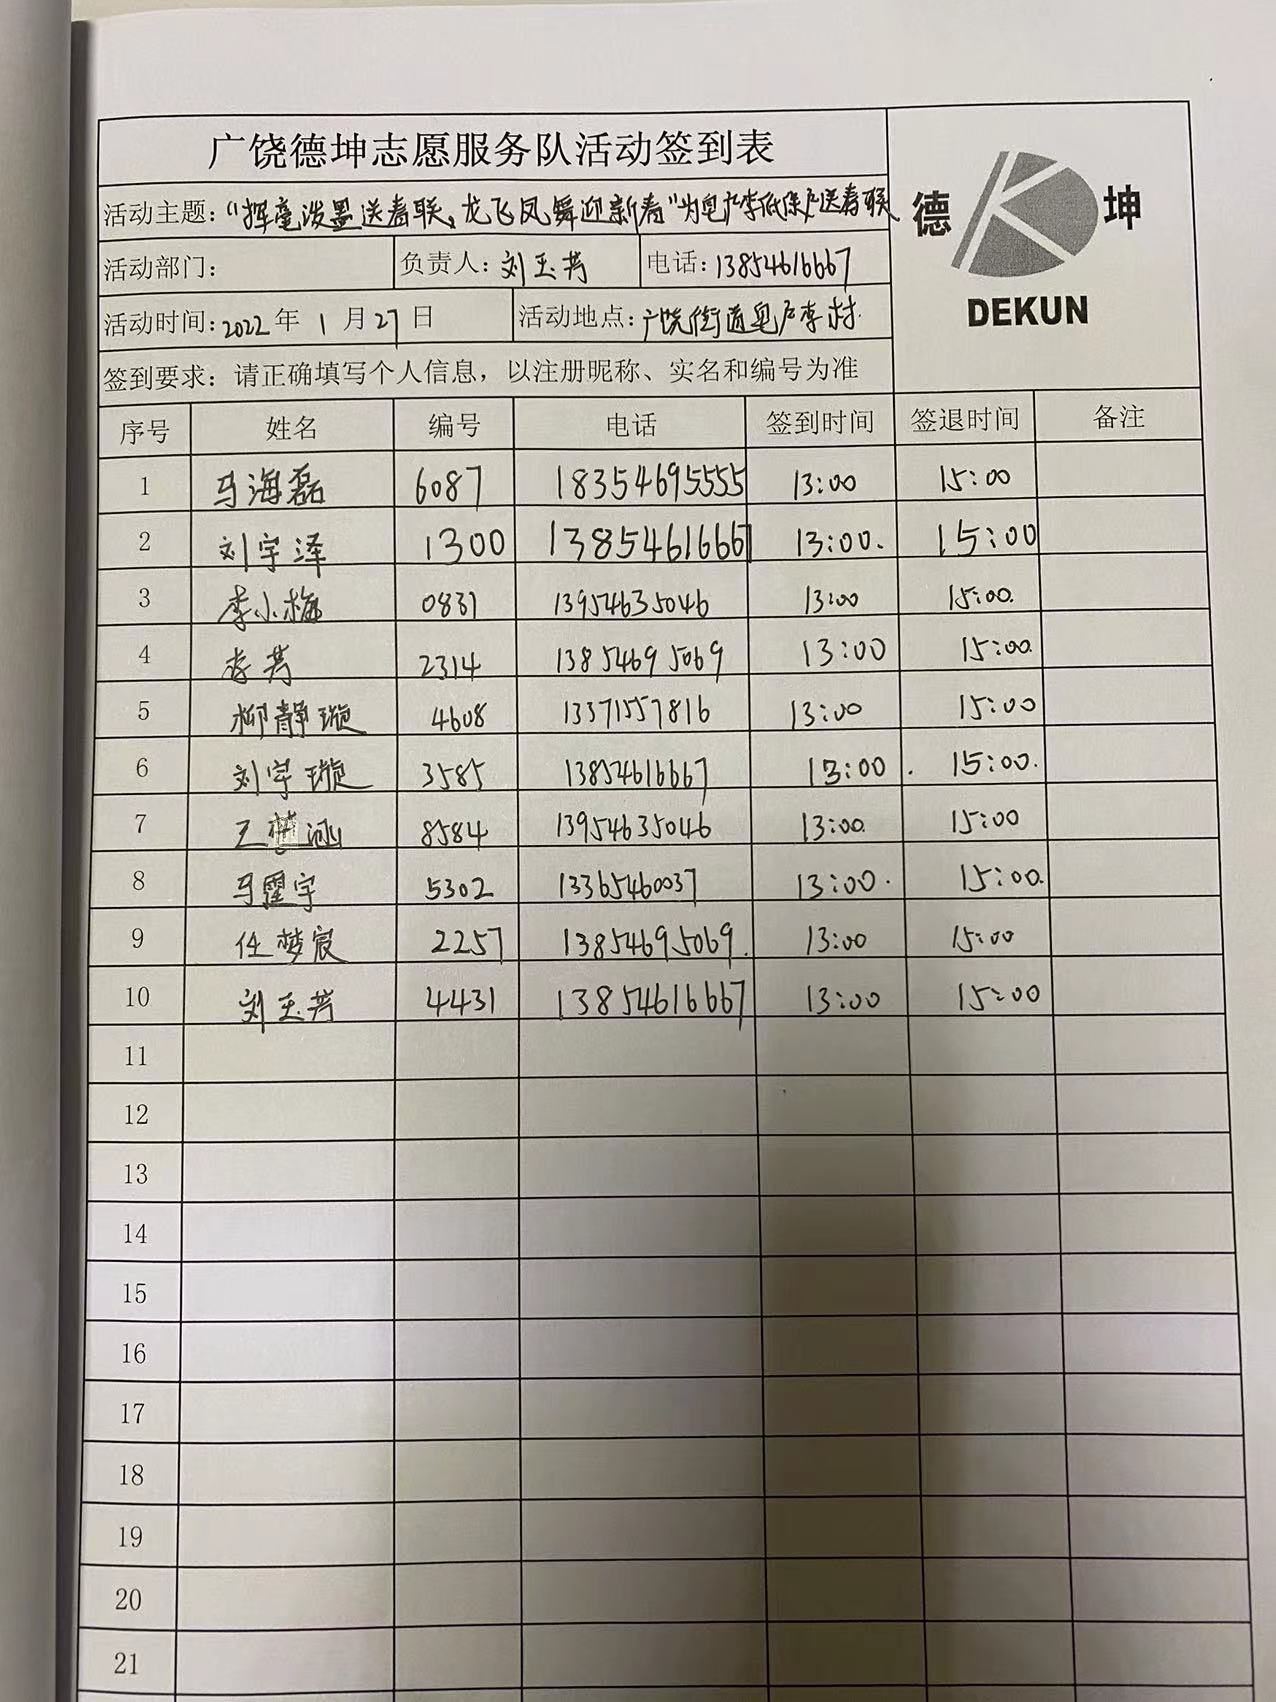 广饶德坤志愿服务队活动签到表
德 坤
DEKUN
活动主题："挥毫泼墨送春联，龙飞凤舞迎新春"为皂户李低保户送春联
活动部门： 负责人：刘玉芳 电话：13854616667
活动时间：2022年 1月27日 活动地点：广饶街道皂户李村.
签到要求：请正确填写个人信息，以注册昵称、实名和编号为准
序号 姓名 编号 电话 签到时间 签退时间 备注
1 马海磊 6087 18354695555 13:00 15:00
2 刘宇泽 1300 13854616667 13:00. 15:00
3 李小梅 0831 13954635046 13:00 15:00.
4 李芳 2314 13854695069 13:00 15:00.
5 柳静璇 4608 13371557816 13:00 15:00
6 刘宇璇 3585 13854616667 13:00. 15:00.
7 王 涵 8584 13954635046 13:00. 15:00
8 马霆宇 5302 13365460037 13:00. 15:00.
9 任梦宸 2257 13854695069. 13:00 15:00
10 刘玉芳 4431 13854616667 13:00 15:00
11
12
13
14
15
16
17
18
19
20
21